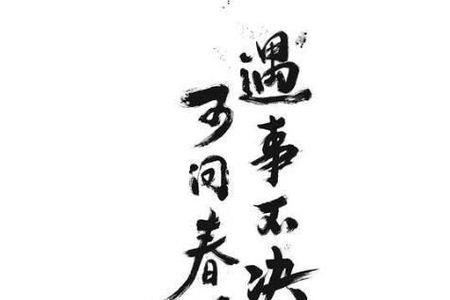 遇事不决
可问春